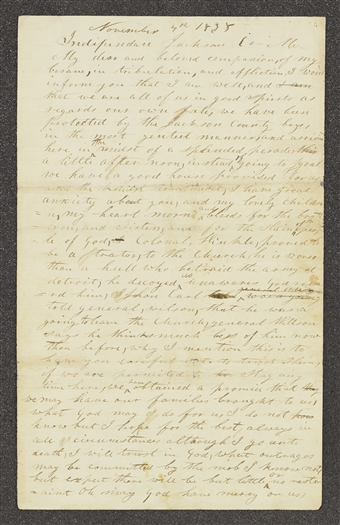 November 4th 1838
Independance Jackson Co - Mo
My dear and beloved companion, of my
bosam, in tribulation, and affliction, I woud
inform you that I am well, and
that we are all of us in good spirits as
regards our own fate, we have been
protected by the Jackson County boys
in the most genteel manner, and arrived
here in the midst of a splended perade,
a little after noon, instead of going to goal
we have a good house provided for us
and the kindst treatment, I have great
anxiety about you, and my lovely children
my heart morns bleeds for the
and Sisters, and for the slain
le of God, Colonal, Hinkle, proved to
be a trator, to the Church, he is worse
than a hull who betraid the army at
detroit, he decoyed us unawares God
ed him,
told general, wilson, that he was
going to leave the Church, general Willson
says he thinks much less of him now
than before, why I mention this is to
have you careful not to trust them,
if we are permited to Stay any
time here, we have obtained a promice that
we may have our families brought to us,
what God may do for us I do not
know but I hope for the best always in
all circumstances although I go unto
death, I will trust in God, what outrages
may be committed by the mob I know not,
but expect there will be but little or no restr
-aint Oh may God have mercy on us,